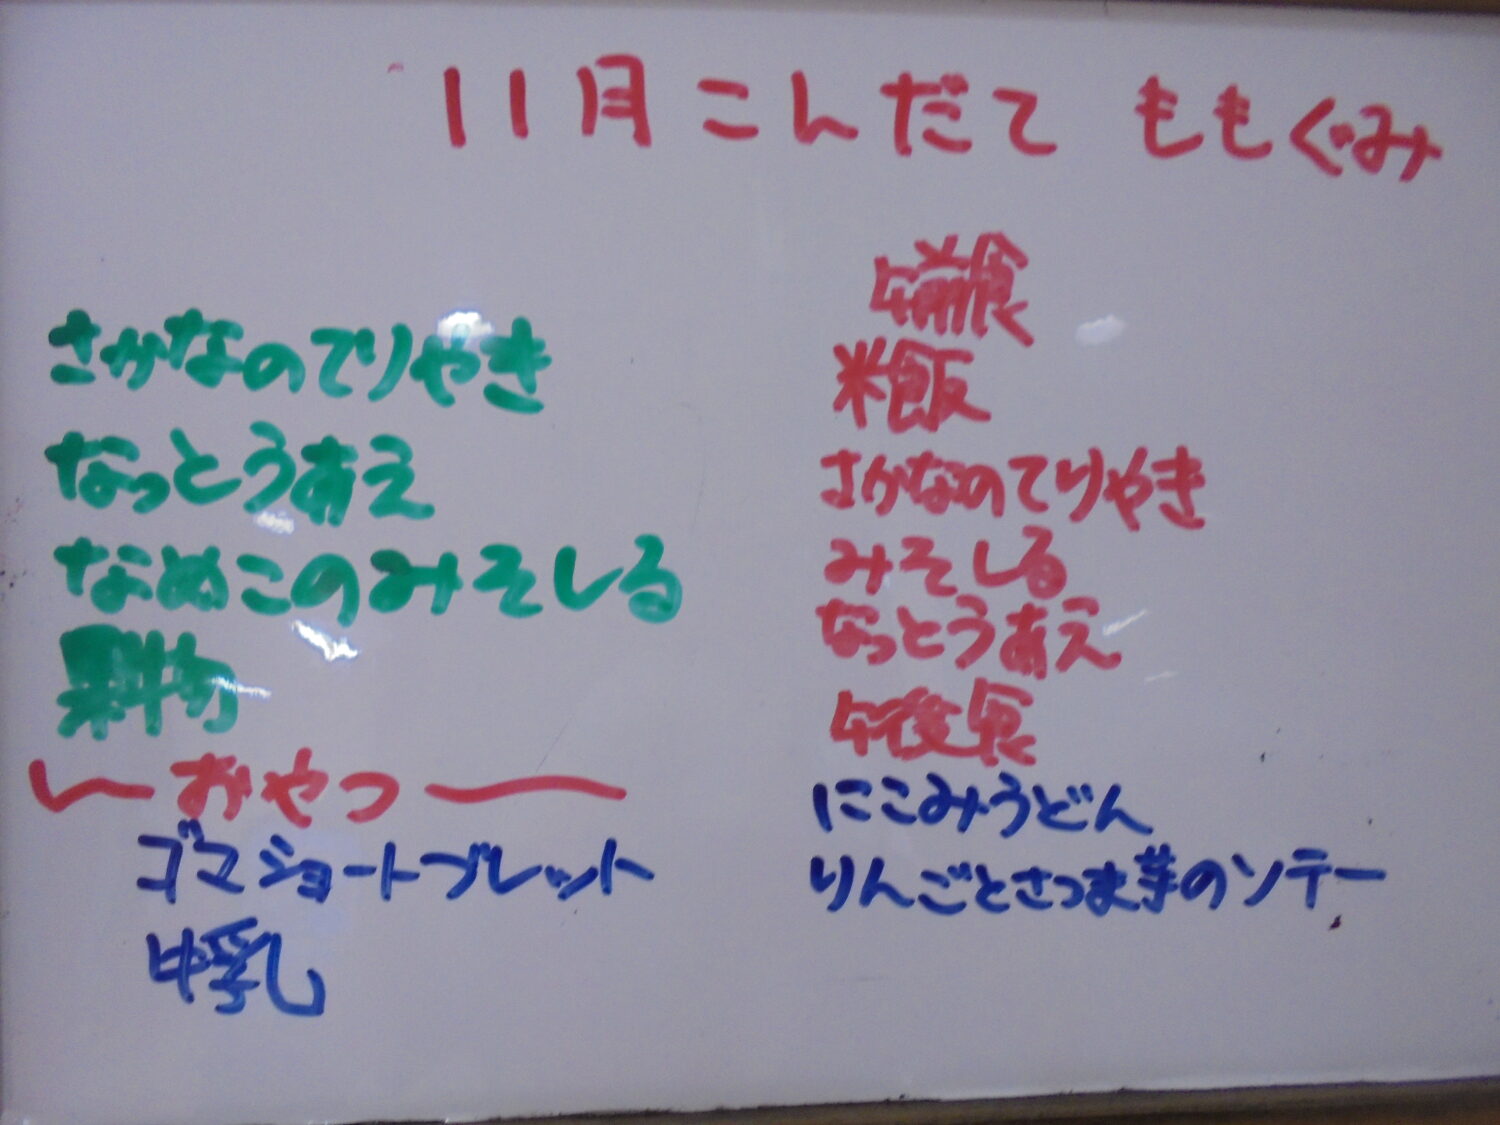 11月こんだて ももぐみ
さかなのてりやき
なっとうあえ
なめこのみそしる
果物
おやつ
ゴマショートブレット
牛乳
午前食
米飯
さかなのてりやき
みそしる
なっとうあえ
午後食
にこみうどん
りんごとさつま芋のソテー